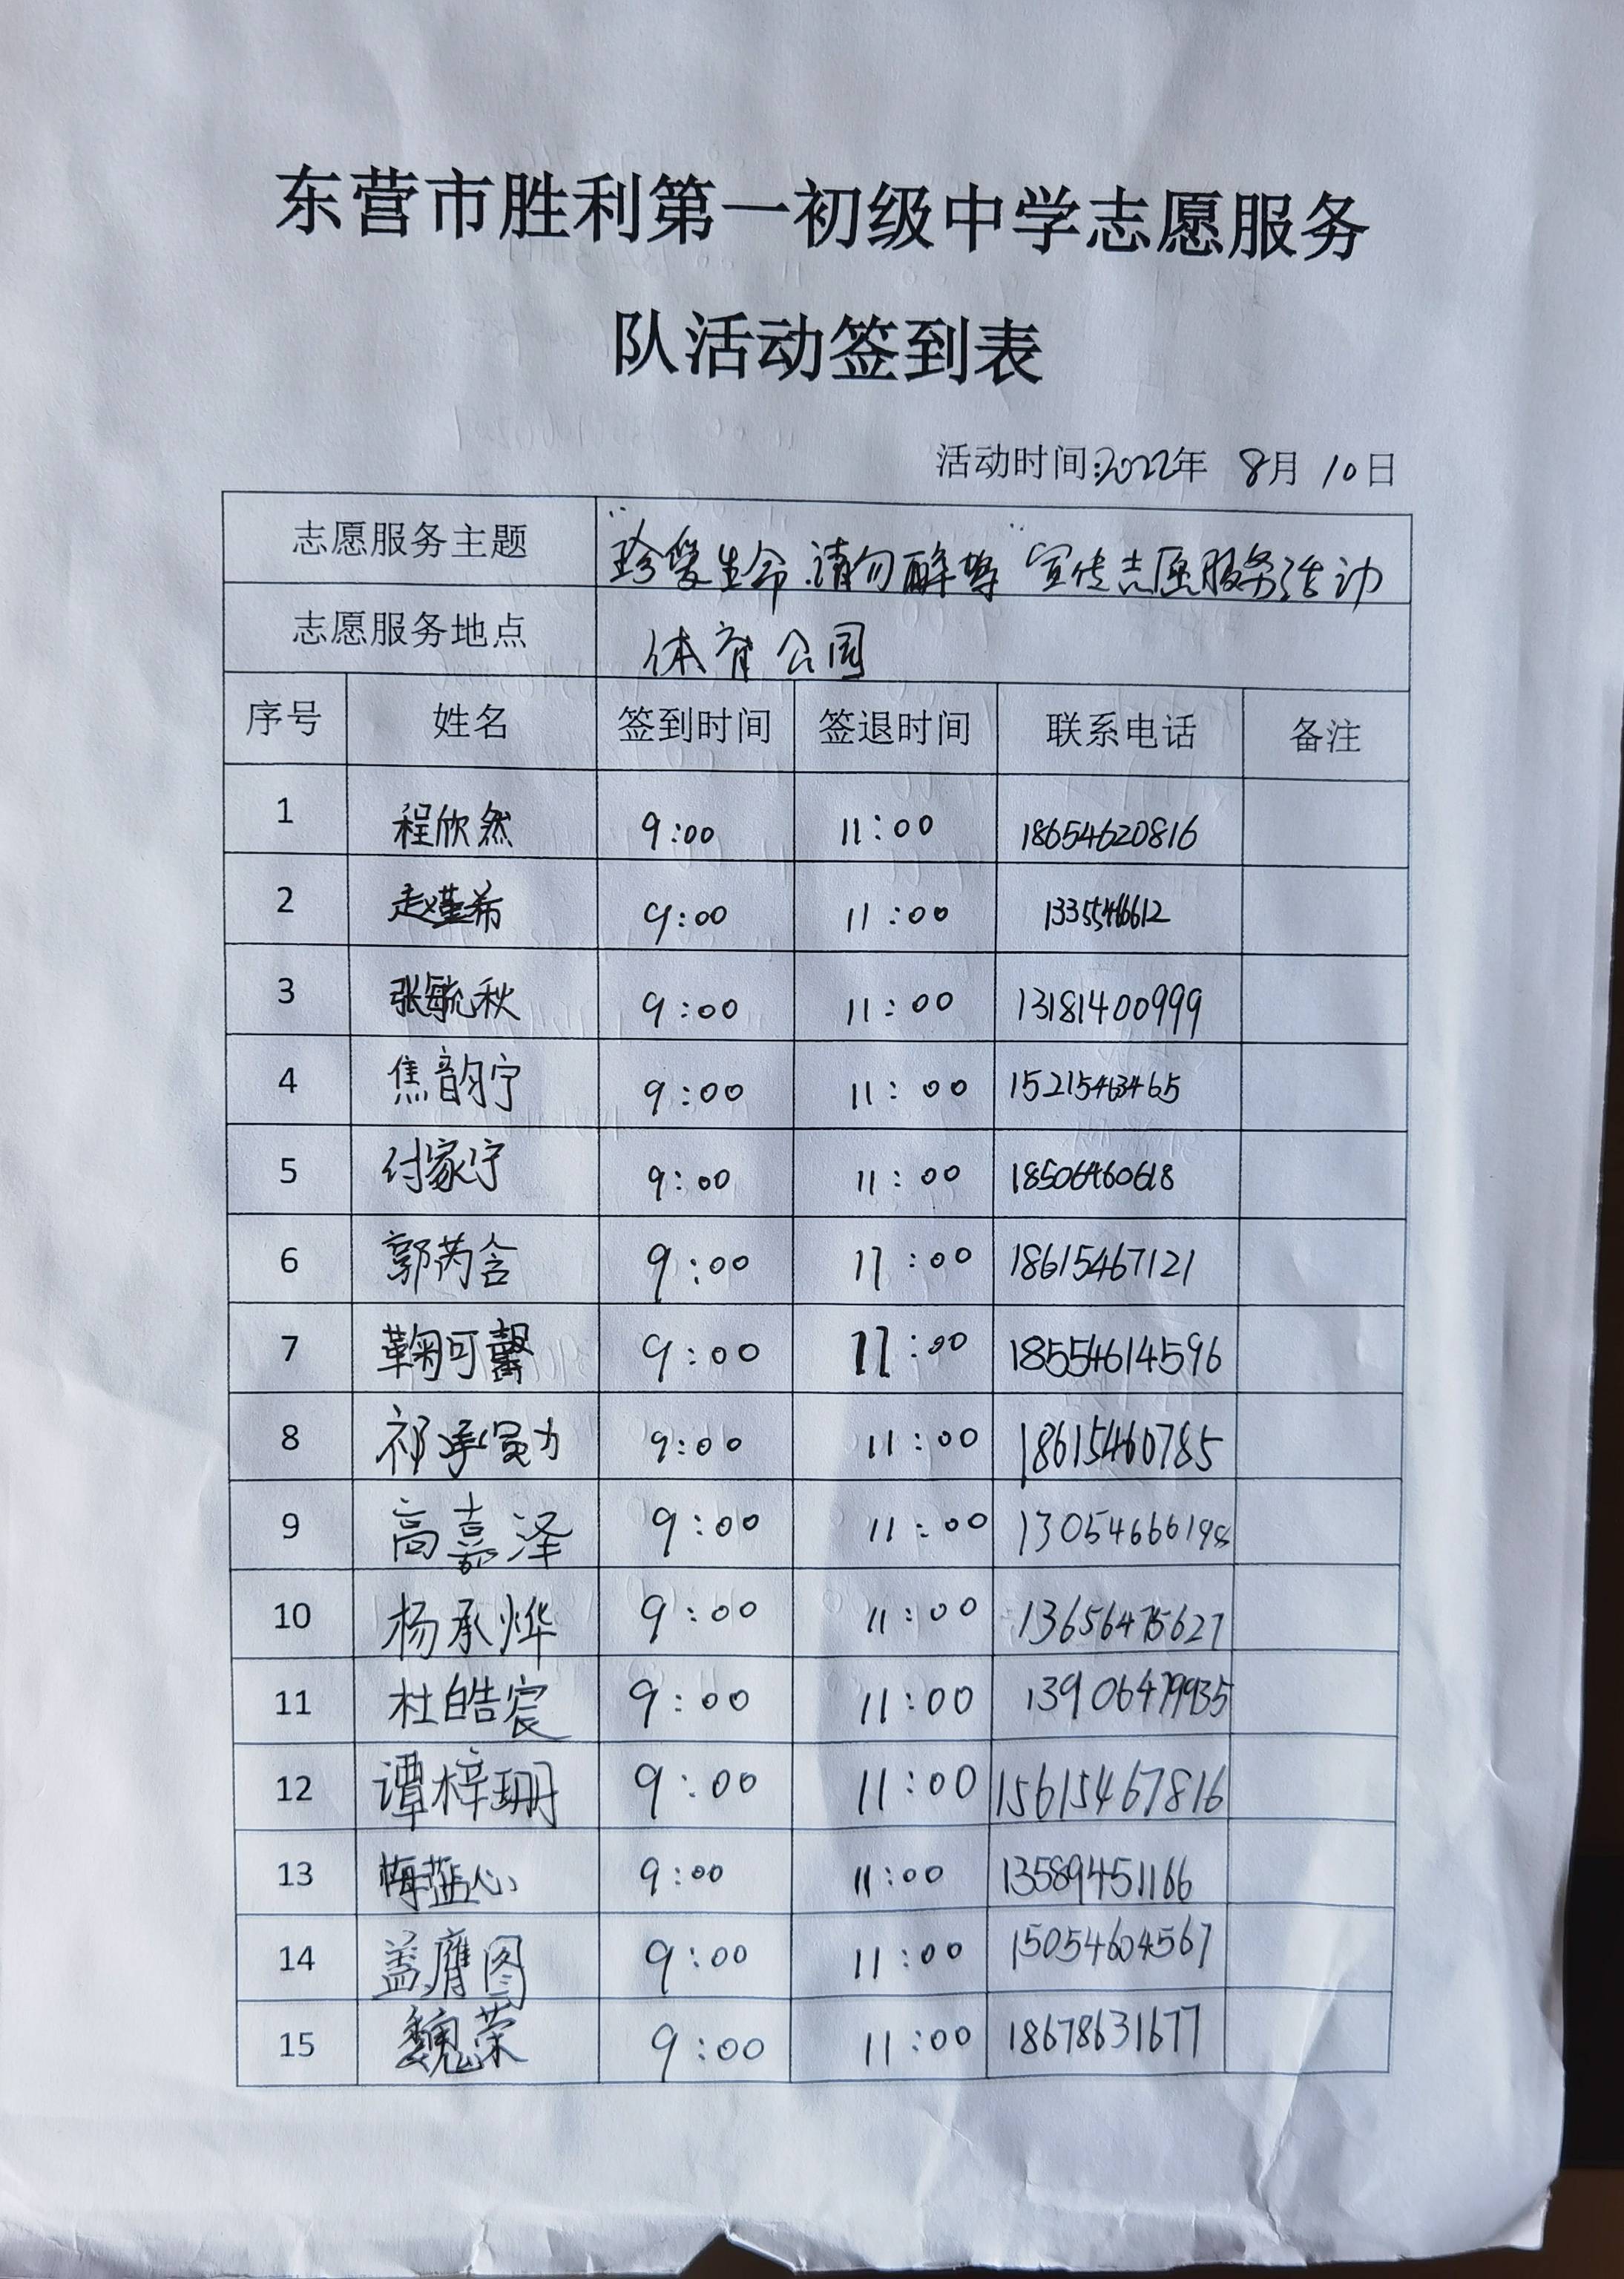 东营市胜利第一初级中学志愿服务
队活动签到表
活动时间:2022年 8月 10日
志愿服务主题 "珍爱生命.请勿醉驾"宣传志愿服务活动
志愿服务地点 体育公园
序号 姓名 签到时间 签退时间 联系电话 备注
1 程欣然 9:00 11:00 18654620816
2 赵瑾希 9:00 11:00
3 张毓秋 9:00 11:00 13181400999
4 焦韵宁 9:00 11:00 15215463465
5 付家宁 9:00 11:00 18506460618
6 郭芮含 9:00 11:00 18615467121
7 鞠可馨 9:00 11:00 18554614596
8 祁承勋 9:00 11:00 18615460785
9 高嘉泽 9:00 11:00
10 杨承烨 9:00 11:00 13656475627
11 杜皓宸 9:00 11:00 13906479935
12 谭梓珊 9:00 11:00 15615467816
13 梅蓝心 9:00 11:00 13589451166
14 盖膺图 9:00 11:00 15054604567
15 魏荣 9:00 11:00 18678631677